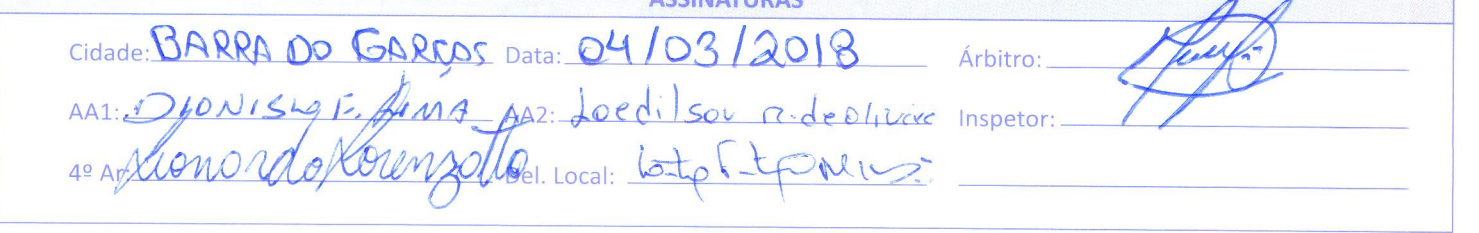 ASSINATURAS
Cidade: BARRA DO GARÇAS Data: 04/03/2018 Árbitro:
AA1: F. LIMA AA2: Joedilson R. de Oliveira Inspetor:
4º Ar Leonardo Lorenzatto Del. Local: